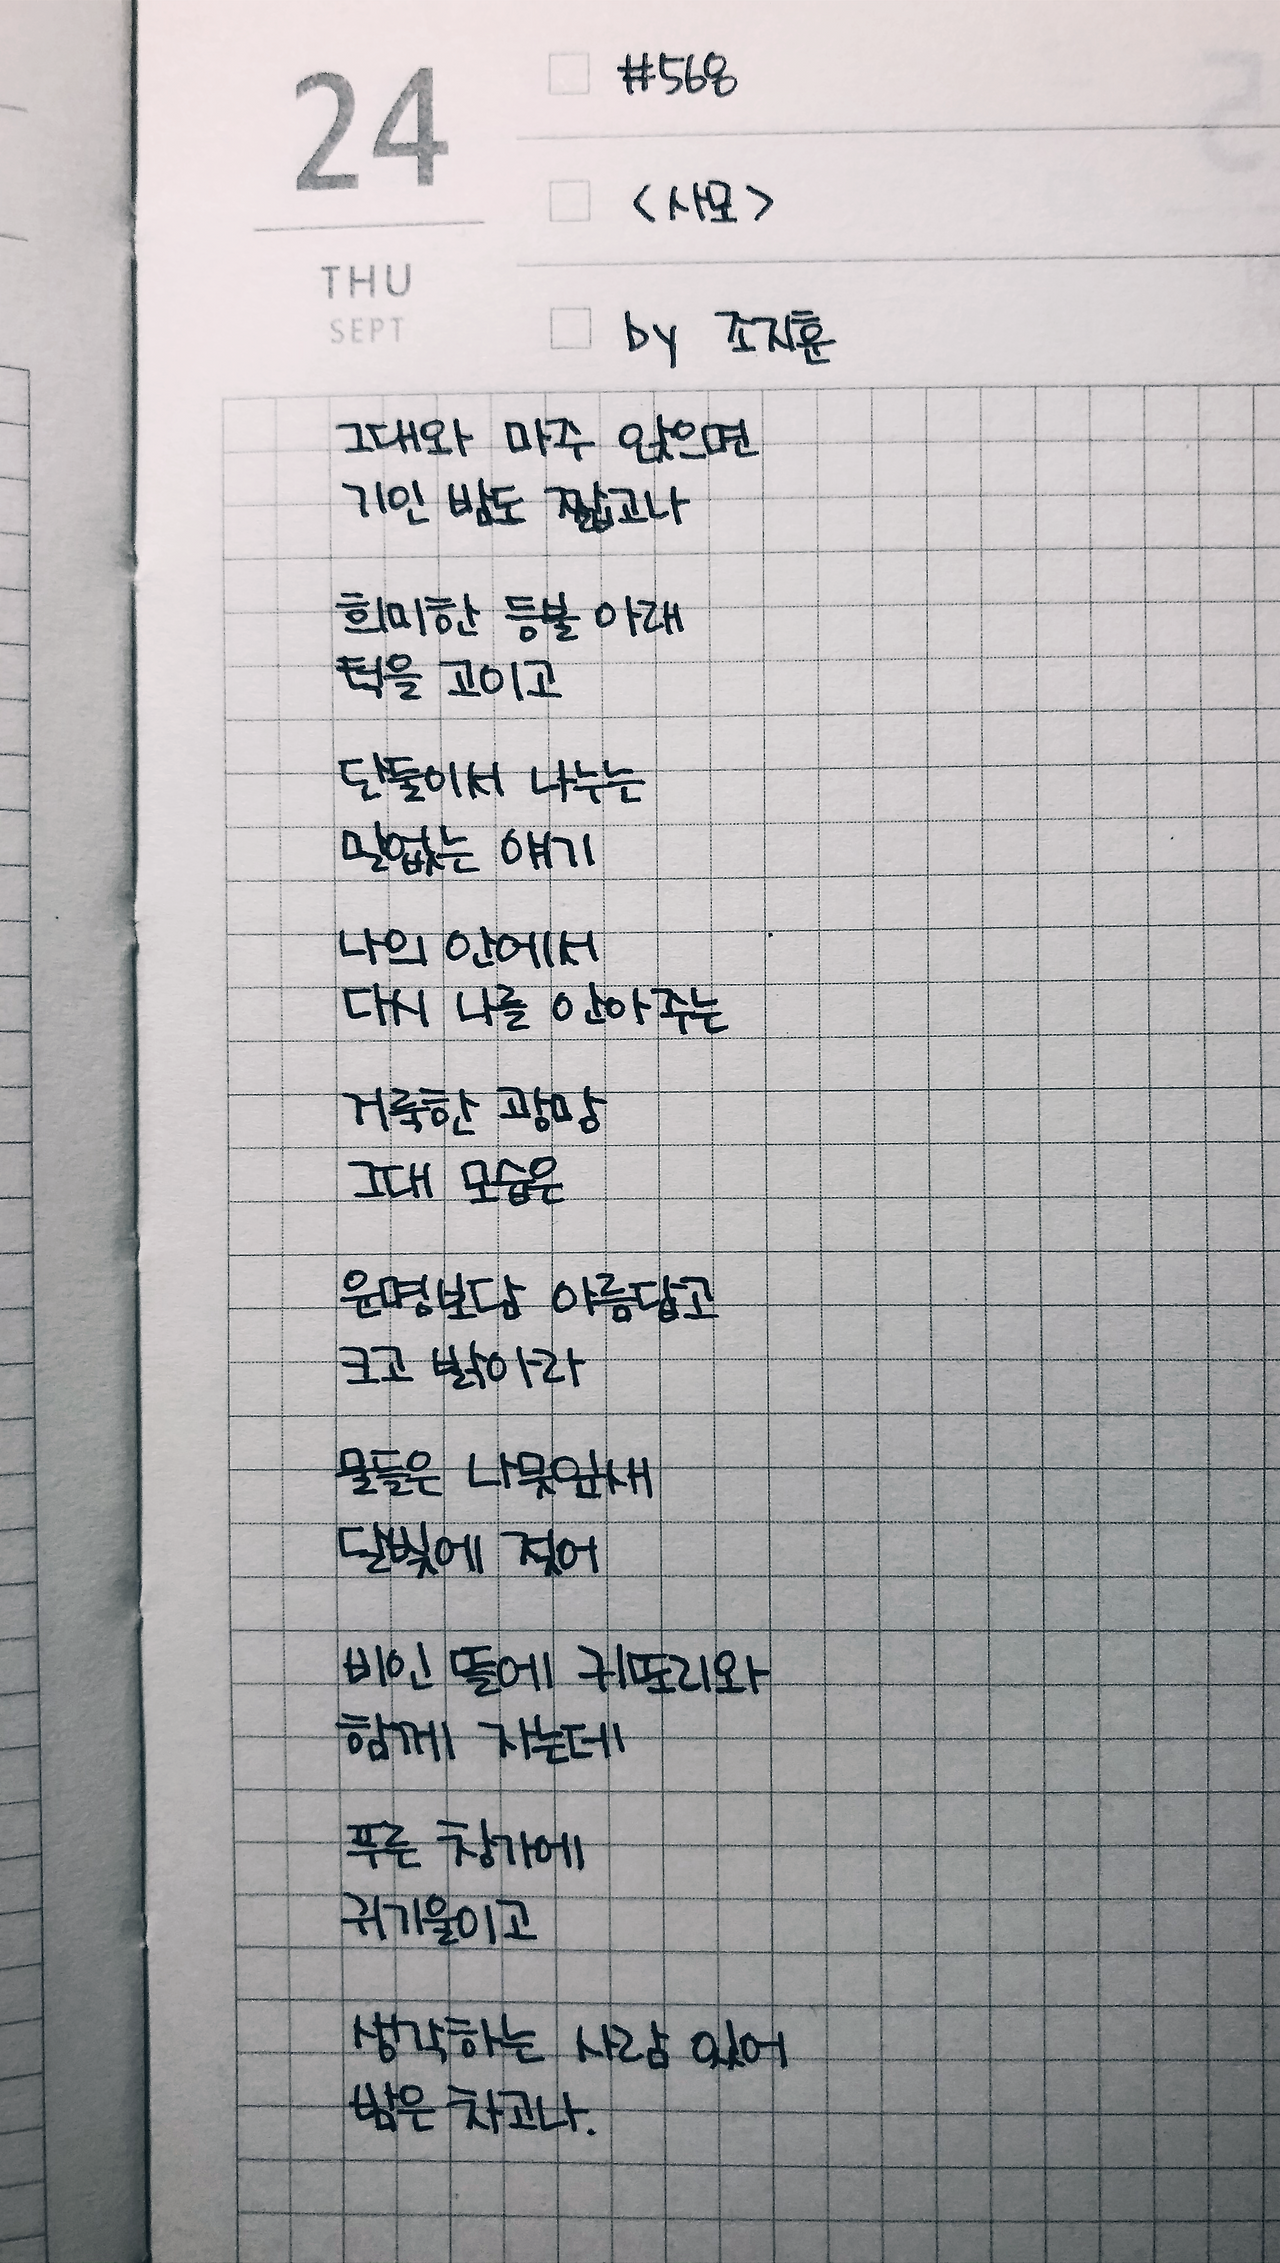 24
THU
SEPT
#568
<사모>
by 조지훈
그대와 마주 앉으면
기인 밤도 짧고나
희미한 등불 아래
턱을 고이고
단둘이서 나누는
말없는 얘기
나의 안에서
다시 나를 안아주는
거룩한 광망
그대 모습은
운명보담 아름답고
크고 밝아라
물들은 나뭇잎새
달빛에 젖어
비인 뜰에 귀또리와
함께 자는데
푸른 창가에
귀기울이고
생각하는 사람 있어
밤은 차고나.